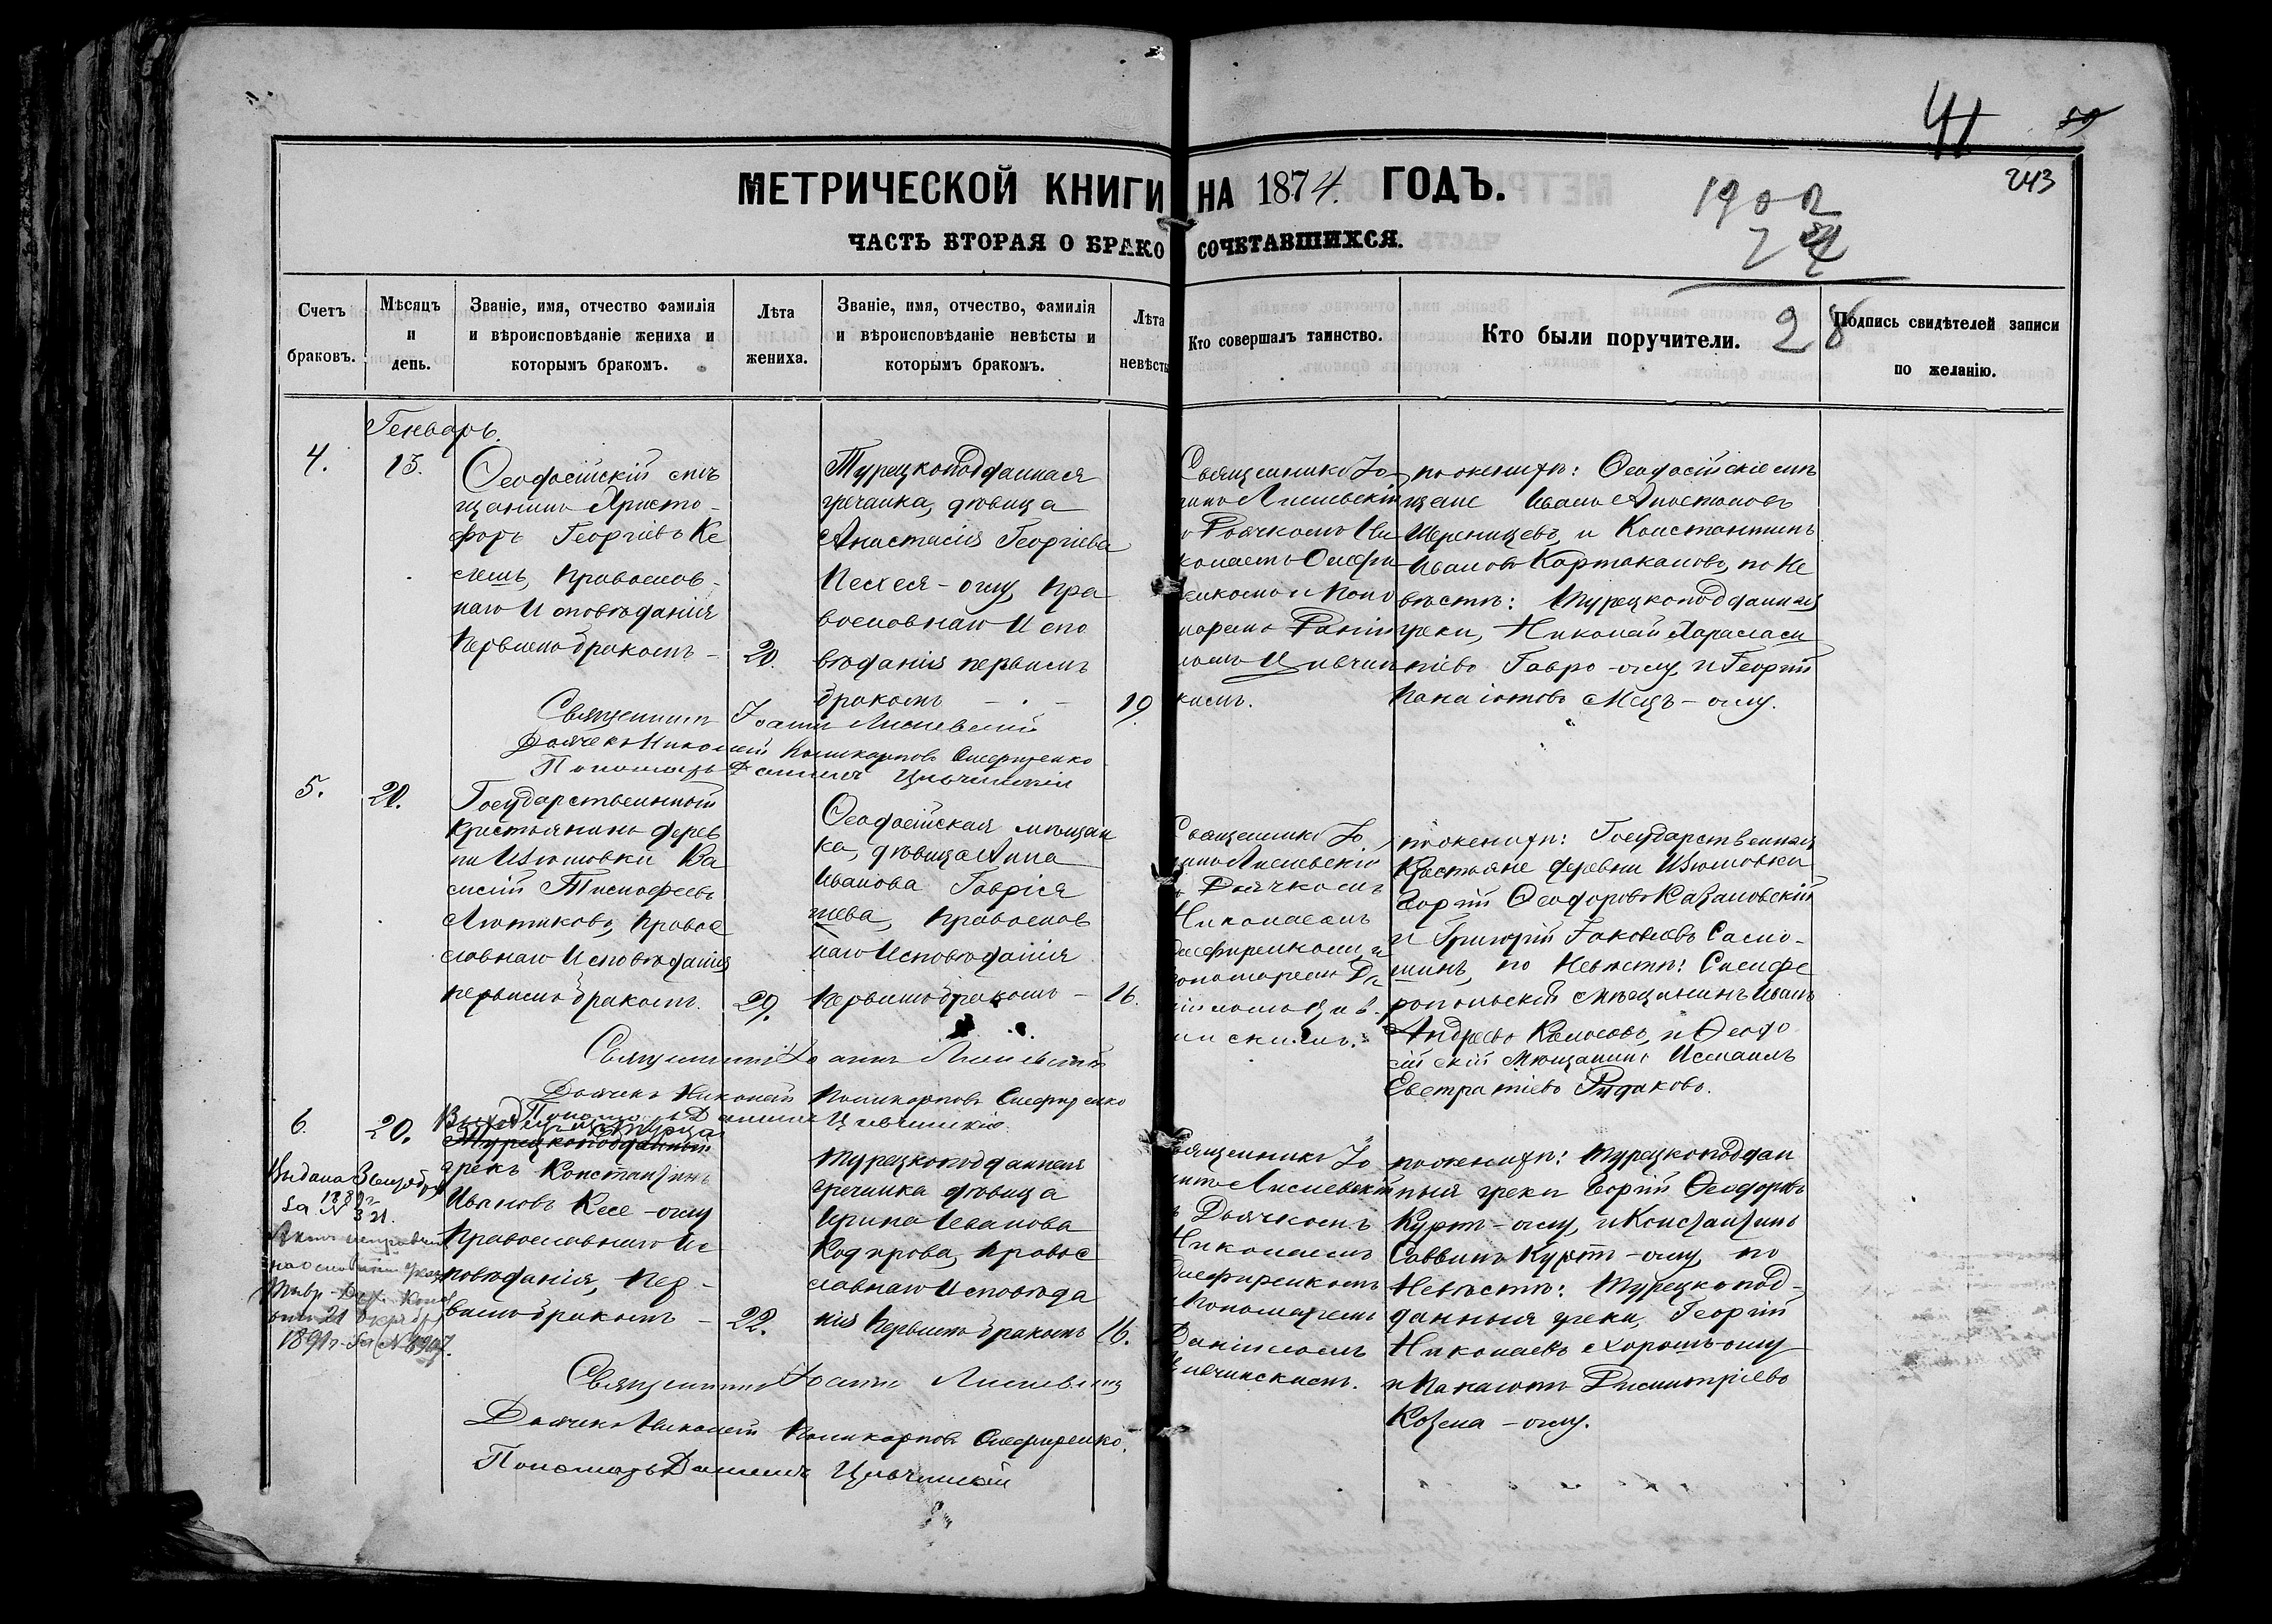 41
59
243
МЕТРИЧЕСКОЙ КНИГИ НА 1874. ГОДЪ.
ЧАСТЬ ВТОРАЯ О БРАКОСОЧЕТАВШИХСЯ.
1902
74
28
Счетъ браковъ.
Мѣсяцъ и день.
Званіе, имя, отчество фамилія
и вѣроисповѣданіе жениха и
которымъ бракомъ.
Лѣта жениха.
Званіе, имя, отчество, фамилія
и вѣроисповѣданіе невѣсты и
которымъ бракомъ.
Лѣта невѣсты
Кто совершалъ таинство.
Кто были поручители.
Подпись свидѣтелей записи
по желанію.
Генварь.
4.
13.
Ѳеодосійскій мѣ
щанинъ Христо-
форъ Георгіевъ Ке
православ-
наго Исповѣданія
первымъ бракомъ -
20.
Турецкоподданная
гречанка, дѣвица
Анастасія Георгіева
оглу, пра
вославнаго Испо
вѣданія первымъ
бракомъ - -
19.
Священникъ Іо
аннъ Лисневскій
съ Дьячкомъ Ни
колаемъ Олефи
ренкомъ и Поно
маремъ Дани
ломъ Цивчин
кимъ.
по женихѣ: Ѳеодосійскіе мѣ
щане Иванъ Апостоловъ
и Константинъ
Ивановъ Картакановъ, по Не
вѣстѣ: Турецкоподданныя
греки, Николай
Гавро-оглу, и Георгій
Панаіотовъ -оглу.
Священникъ Іоаннъ Лисневскій
Дьячекъ Николай Поликарповъ Олефиренко
Пономарь Даниилъ Цивчинскій
5.
20.
Государственный
крестьянинъ дерев
ни Изюмовки Ва
силій Тимофеевъ
Лютиковъ, право
славнаго Исповѣданія
первымъ бракомъ.
29.
Ѳеодосійская мѣщан
ка, дѣвица Анна
Иванова
православ
наго Исповѣданія
первымъ бракомъ -
16.
Священникъ Іо
аннъ Лисневскій
съ Дьячкомъ
Николаемъ
Олефиренкомъ, и
Пономаремъ Да
ніиломъ Цив-
чинскимъ.
по женихѣ: Государственныя
Крестьяне деревни Изюмовки
Георгій Ѳеодоровъ Казановскій
и Григорій Іаковлевъ Само-
шинъ, по Невѣстѣ: Симфе
ропольскій мѣщанинъ Иванъ
Андреевъ Колосовъ, и Ѳеодо
сійскій мѣщанинъ Исмаилъ
Евстратіевъ Рудаковъ.
Священникъ Іоаннъ Лисневскій
Дьячекъ Николай Поликарповъ Олефиренко
Пономарь Даниилъ Цивчинскій
6.
20.
Турецкоподданный
грекъ Константинъ
Ивановъ Кесе-оглу
Православнаго Ис
повѣданія, пер-
вымъ бракомъ -
22.
Турецкоподданная
гречанка дѣвица
Ирина Иванова
Кодирова, право
славнаго Исповѣда
нія первымъ бракомъ
16.
Священникъ Іо
аннъ Лисневскій
съ Дьячкомъ
Николаемъ
Олефиренкомъ
и Пономаремъ
Даніиломъ
Цивчинскимъ.
по женихѣ: Турецкоподдан
ныя греки Георгій Ѳеодоровъ
Куртъ-оглу, и Константинъ
Саввинъ Куртъ-оглу, по
Невѣстѣ: Турецкопод-
данныя греки, Георгій
Николаевъ Хорошъ-оглу
и Панаіотъ Димитріевъ
Козма-оглу.
Выдана
за N 321.
1891г. за N 6907.
Священникъ Іоаннъ Лисневскій
Дьячекъ Николай Поликарповъ Олефиренко.
Пономарь Даниилъ Цивчинскій